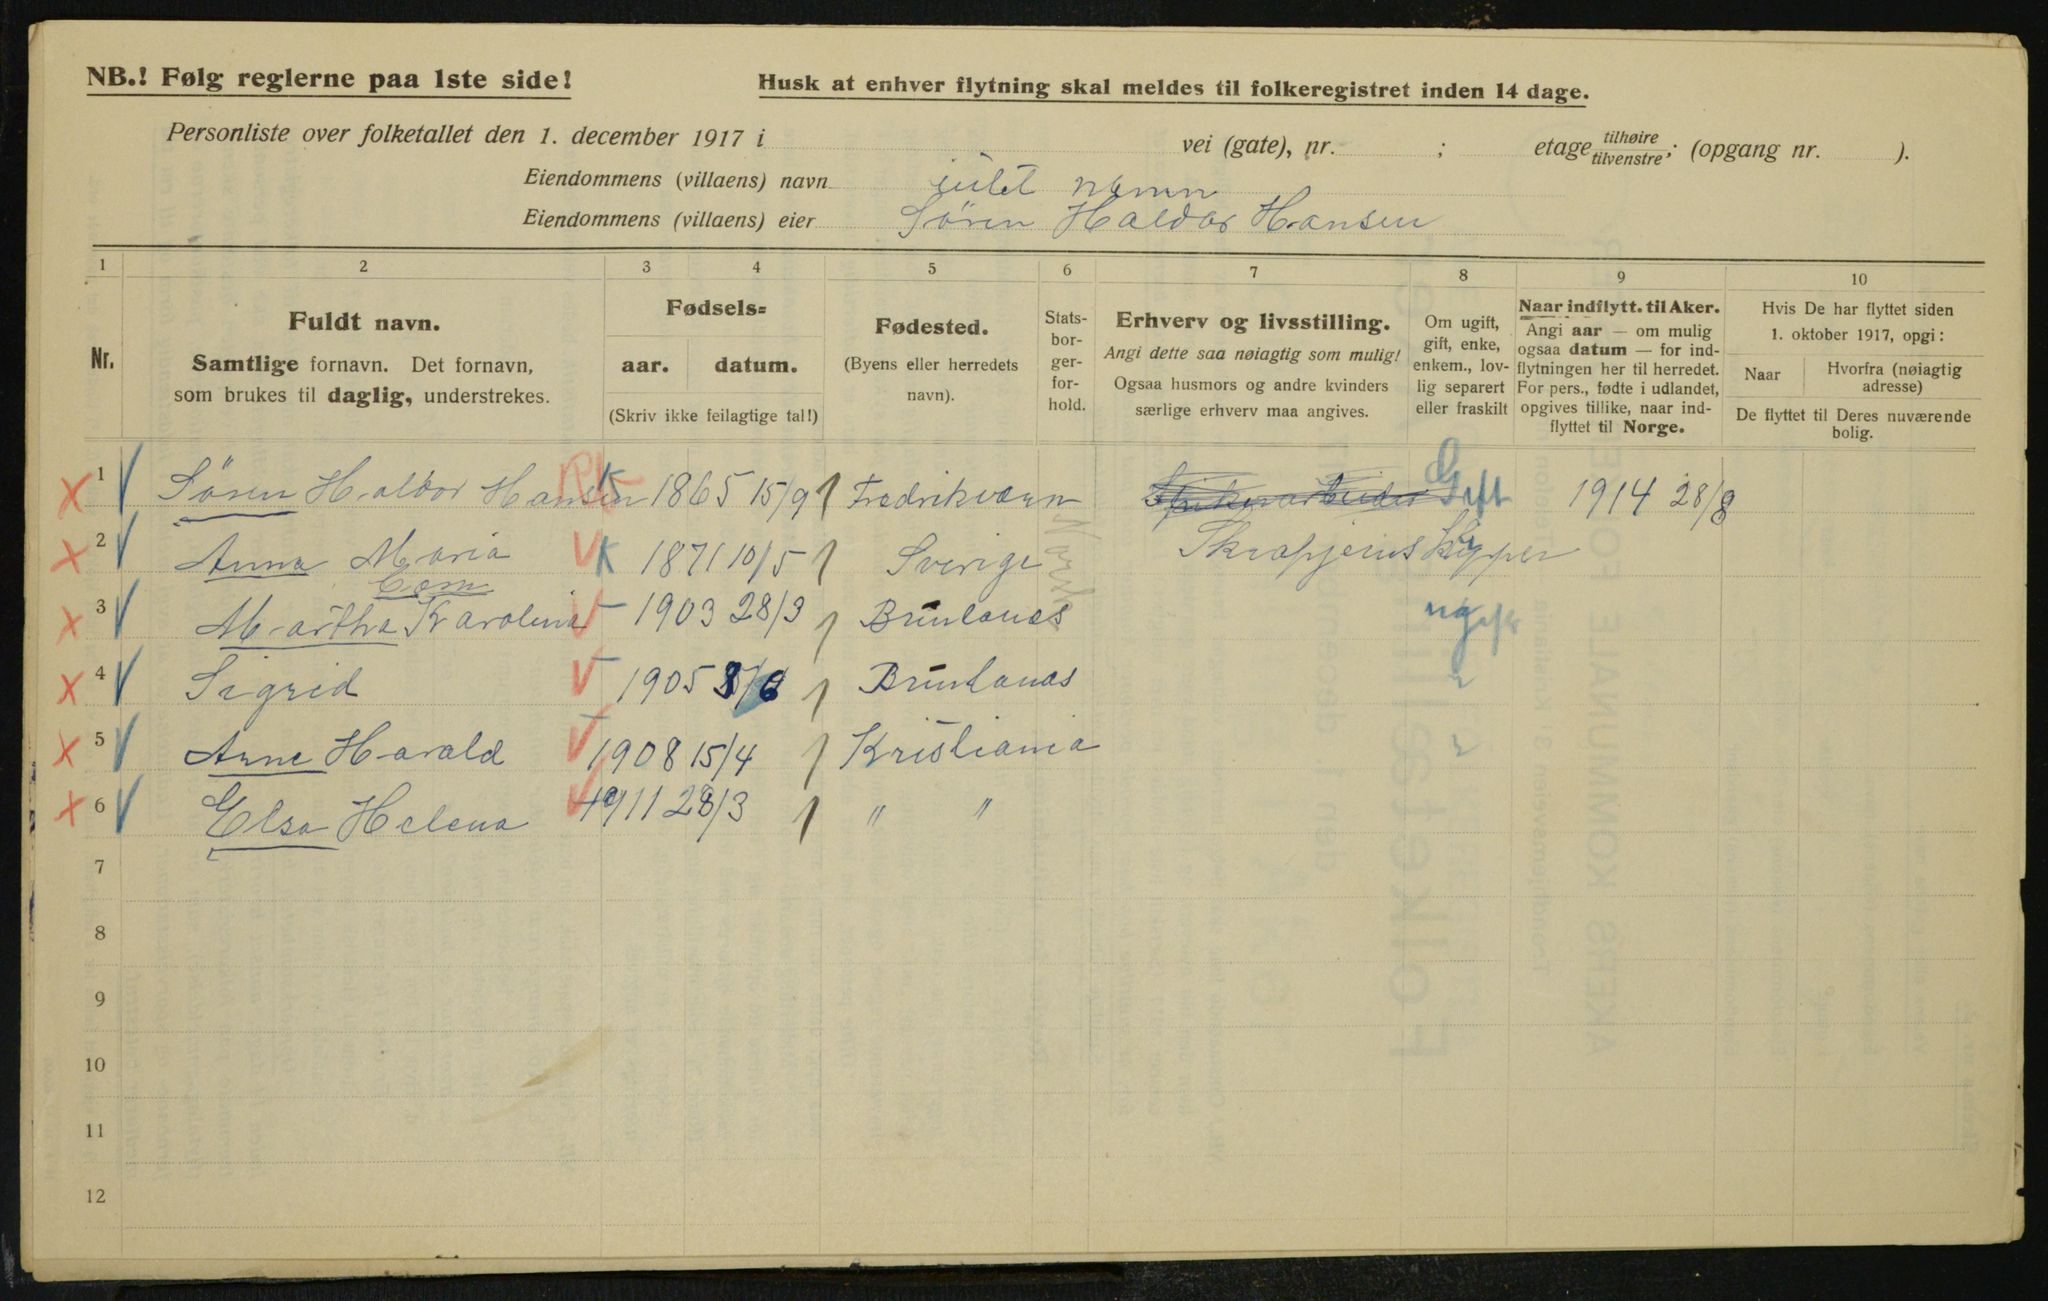 NB.! Følg reglerne paa 1ste side!
Husk at enhver flytning skal meldes til folkeregistret inden 14 dage.
Personliste over folketallet den 1. december 1917 i vei (gate), nr. ; etage tilhøire/tilvenstre; (opgang nr. ).
Eiendommens (villaens) navn intet navn
Eiendommens (villaens) eier Søren Haldor Hansen
1 2 3 4 5 6 7 8 9 10
Nr.
Fuldt navn.
Samtlige fornavn. Det fornavn,
som brukes til daglig, understrekes.
Fødsels=
aar. datum.
(Skriv ikke feilagtige tal!)
Fødested.
(Byens eller herredets
navn).
Stats-
bor-
ger-
for-
hold.
Erhverv og livsstilling.
Angi dette saa nøiagtig som mulig!
Ogsaa husmors og andre kvinders
særlige erhverv maa angives.
Om ugift,
gift, enke,
enkem., lov-
lig separert
eller fraskilt
Naar indflytt. til Aker.
Angi aar — om mulig
ogsaa datum — for ind-
flytningen her til herredet.
For pers., fødte i udlandet,
opgives tillike, naar ind-
flyttet til Norge.
Hvis De har flyttet siden
1. oktober 1917, opgi:
Naar
Hvorfra (nøiagtig
adresse)
De flyttet til Deres nuværende
bolig.
1 Søren Haldor Hansen 1865 15/9 Fredriksværn Gift 1914 28/8
2 Anna Maria 1871 10/5 Sverige Skrapjerns
3 Martha Karolina 1903 28/3 Brunlanes ugift
4 Sigrid 1905 /6 Brunlanes
5 Arne Harald 1908 15/4 Kristiania
6 Elsa Helena 1911 28/3 " "
7
8
9
10
11
12